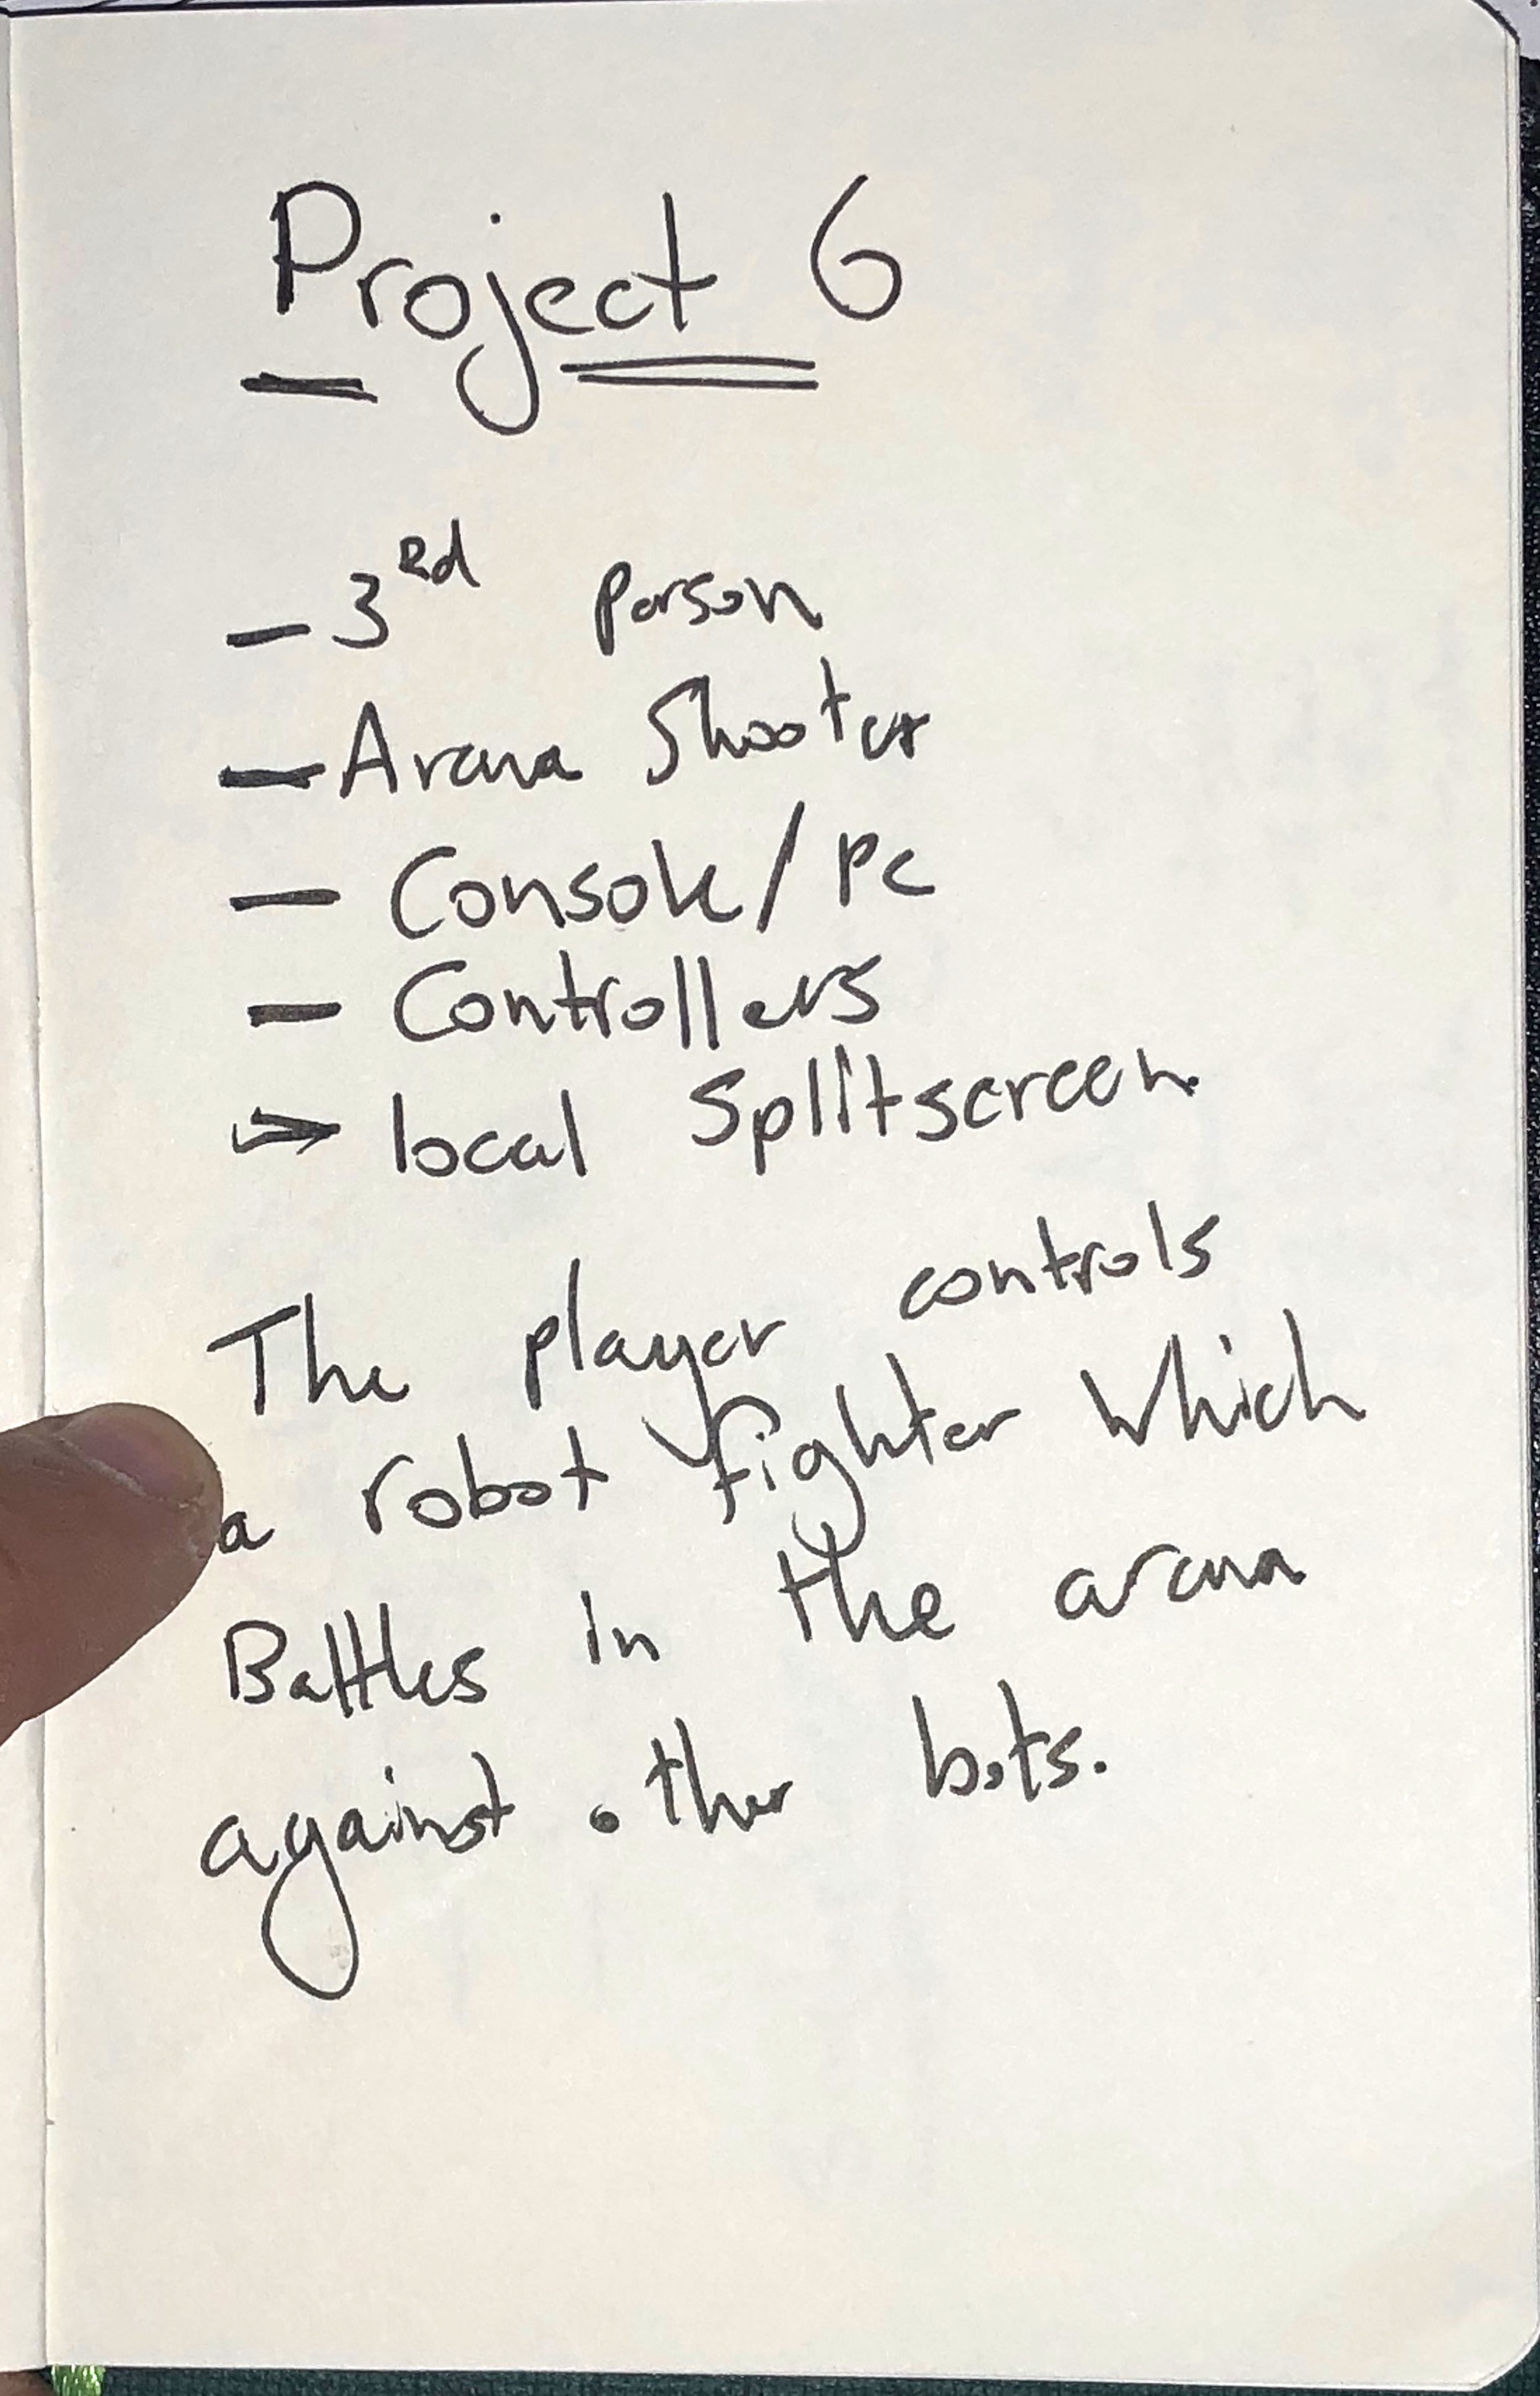 Project 6
- 3rd person
- Arena Shooter
- Console/Pc
- Controllers
-> local Splitscreen
The player controls
a robot fighter which
Battles in the arena
against other bots.